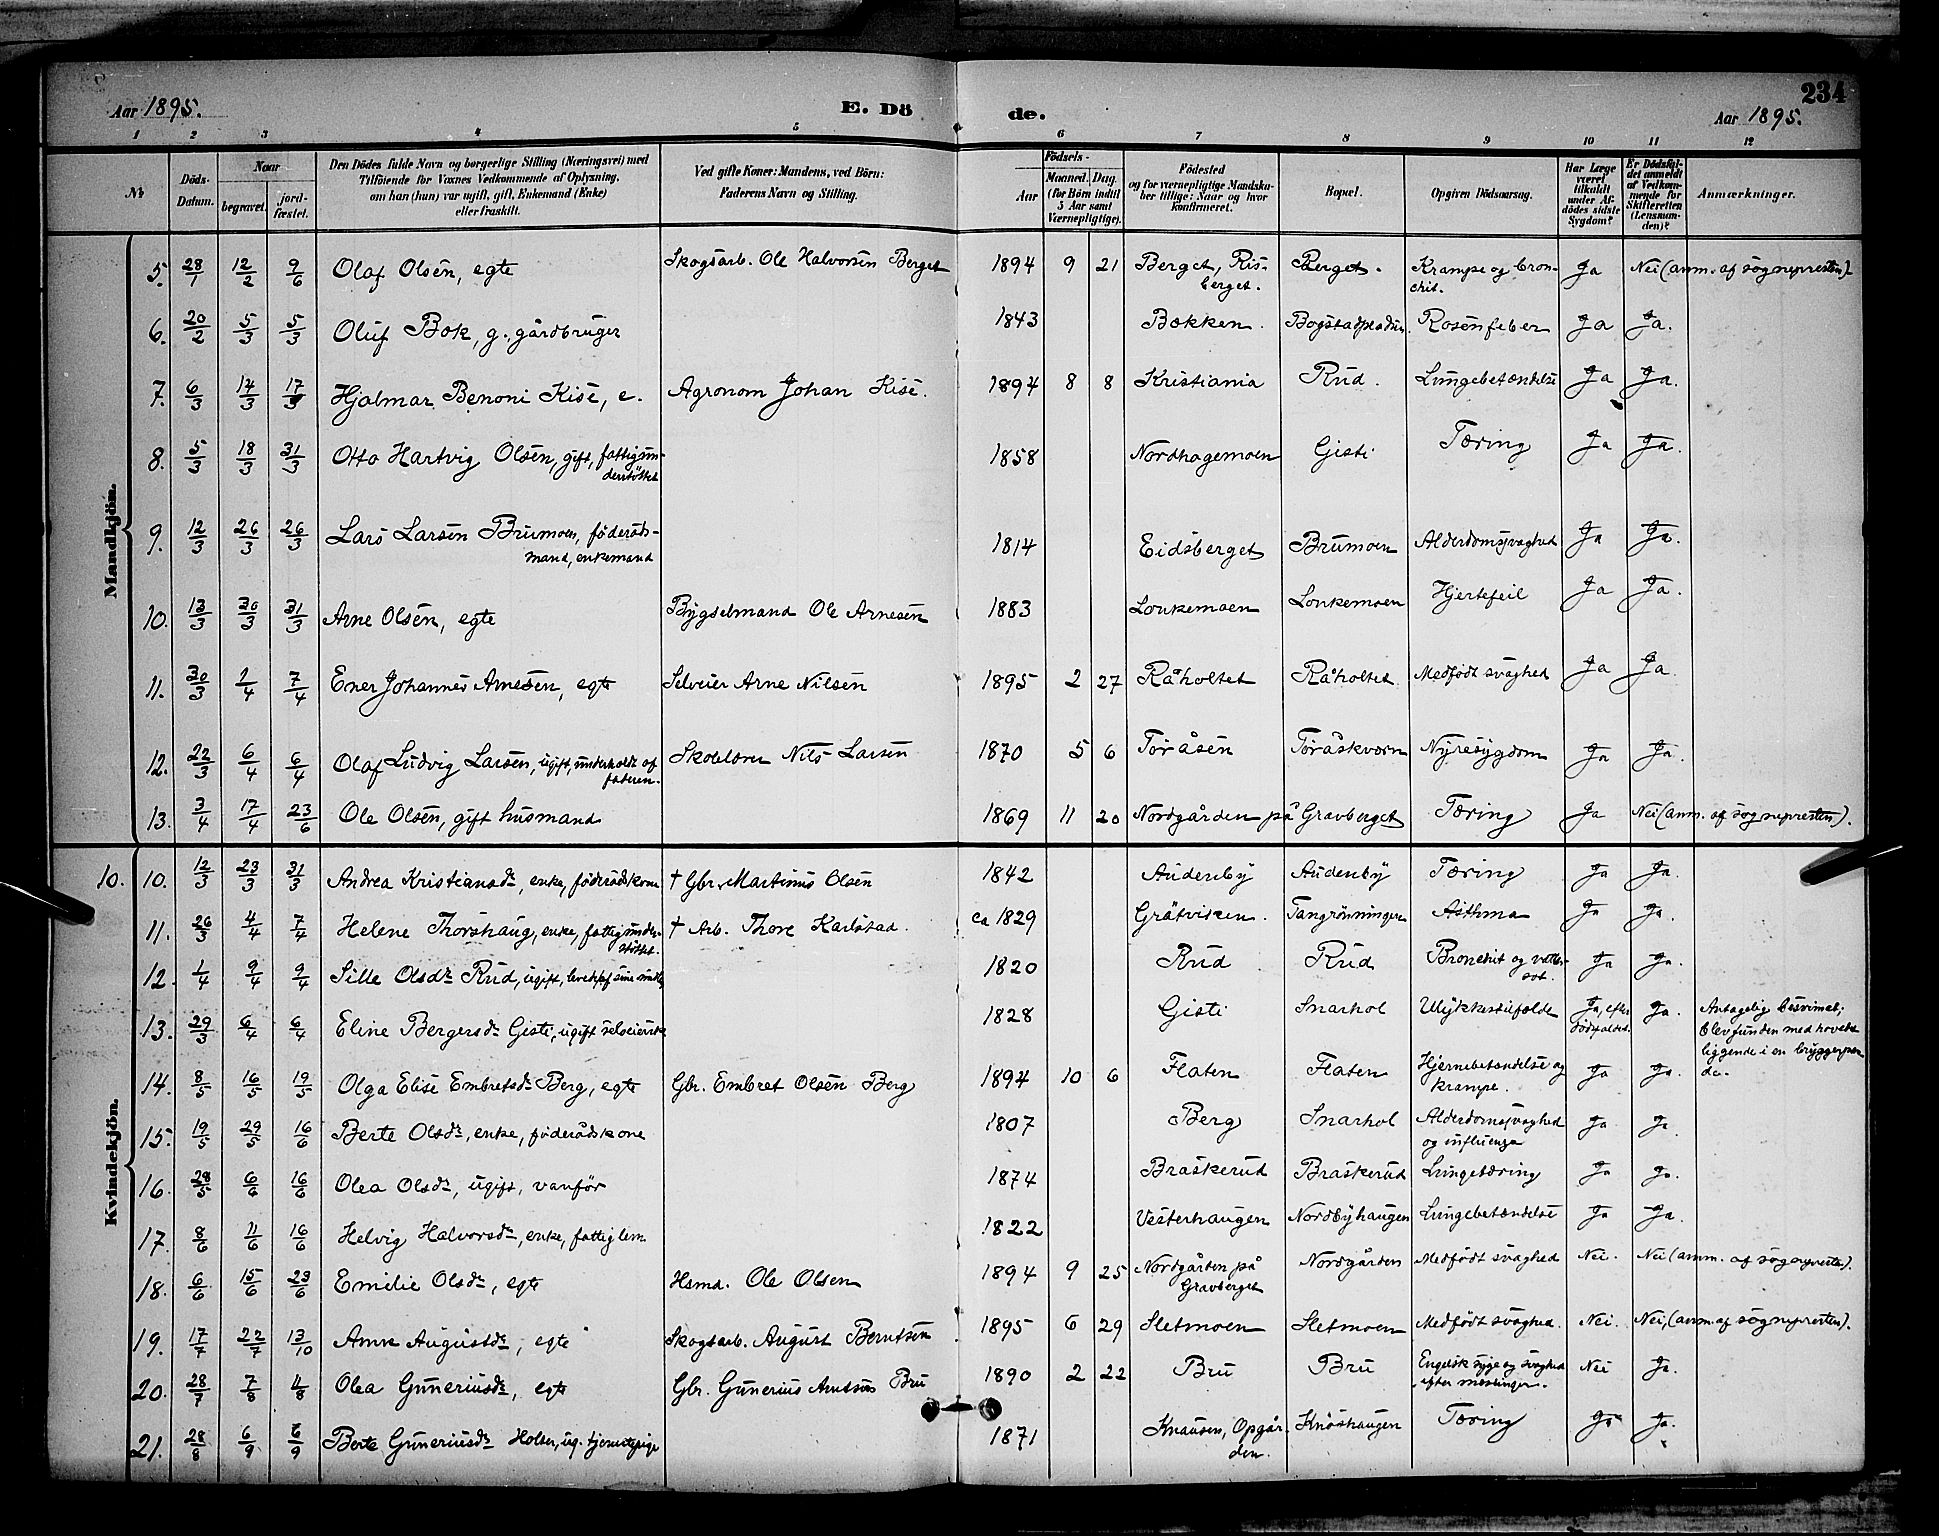 234
Aar 1895. E. Dö de. Aar 1895.
1 2 3 4 5 6 7 8 9 10 11 12
№ Döds-Datum. Naar begravet. jord-fæstet. Den Dödes fulde Navn og borgerlige Stilling (Næringsvei) med Tilföiende for Voxnes Vedkommende af Oplysning, om han (hun) var ugift, gift, Enkemand (Enke) eller fraskilt. Ved gifte Koner: Mandens, ved Börn: Faderens Navn og Stilling. Födsels- Aar Maaned. Dag. (for Börn indtil 5 Aar samt Værnepligtige). Födested og for værnepligtige Mandskaber tillige: Naar og hvor konfirmeret. Bopæl. Opgiven Dödsaarsag. Har Læge været tilkaldt under Afdödes sidste Sygdom? Er Dödsfaldet anmeldt af Vedkommende for Skifteretten (Lensmanden)? Anmærkninger.
Mandkjön.
5. 28/1 12/2 9/6 Olaf Olsen, egte Skogsarb. Ole Halvorsen Berget 1894 9 21 Berget, Risberget. Berget. Krampe og bronchit. Ja Nei (anm. af sognepresten)
6. 20/2 5/3 5/3 Oluf Bok, g. gårdbruger 1843 Bækken. Bogstadpladsen. Rosenfeber Ja Ja.
7. 6/3 17/3 17/3 Hjalmar Benoni Kise, e. Agronom Johan Kise. 1894 8 8 Kristiania Rud. Lungebetændelse Ja Ja.
8. 5/3 18/3 31/3 Otto Hartvig Olsen, gift, fattigunderstøttet 1858 Nordhagemoen Gisti Tæring Ja Ja.
9. 12/3 26/3 26/3 Lars Larsen Brumoen, föderådsmand, enkemand 1814 Eidsberget Brumoen Alderdomssvaghed Ja Ja.
10. 13/3 30/3 31/3 Arne Olsen, egte Bygselmand Ole Arnesen 1883 Loukemoen Loukemoen Hjertefeil Ja Ja.
11. 30/3 2/4 7/4 Ener Johannes Arnesen, egte Selveier Arne Nilsen 1895 2 27 Råholtet Råholtet Medfödt svaghed Ja Ja.
12. 22/3 6/4 6/4 Olaf Ludvig Larsen, ugift, underholdt af faderen. Skolelærer Nils Larsen 1870 5 6 Toråsen Toråskværn Nyresygdom Ja Ja.
13. 3/4 17/4 23/6 Ole Olsen, gift husmand 1869 11 20 Nordgården på Gravberget Tæring Ja Nei (anm. af sognepresten).
Kvindekjön.
10. 10. 12/3 23/3 31/3 Andrea Kristiansdr, enke, föderådskone † Gbr. Martinus Olsen 1842 Audenby Audenby Tæring Ja Ja.
11. 26/3 4/4 7/4 Helene Thorshaug, enke, fattigunderstöttet. † Arb. Thore Karlstad. ca 1829 Gråtvisken. Tangrönningen Asthma Ja Ja.
12. 1/4 9/4 9/4 Sille Olsdr Rud, ugift, levet af sine midler 1820 Rud Rud Bronchit og vattersot. Ja Ja.
13. 29/3 6/4 6/4 Eline Bergersdr Gisti, ugift selveierske 1828 Gisti Snarhol Ulykkestilfælde Ja, efter dödsfaldet. Ja. Antagelig besvimet; blev funden med hovedet liggende i en bryggerpande.
14. 8/5 16/5 19/5 Olga Elise Embretsdr Berg, egte Gbr. Embret Olsen Berg 1894 10 6 Flaten Flaten Hjernebetændelse og krampe. Ja Ja.
15. 19/5 29/5 16/6 Berte Olsdr, enke, föderådskone 1807 Berg Snarhol Alderdomssvaghed og influenza Ja Ja
16. 28/5 6/6 16/6 Olea Olsdr, ugift, vanför 1874 Braskerud Braskerud Lungetæring Ja Ja.
17. 8/6 11/6 16/6 Helvig Halvorsdr, enke, fattiglem 1822 Vesterhaugen Nordbyhaugen Lungebetændelse Ja Ja.
18. 6/6 15/6 23/6 Emilie Olsdr, egte Hsmd. Ole Olsen 1894 9 25 Nordgården på Gravberget Nordgården Medfödt svaghed Nei. Nei (anm. af sognepresten).
19. 17/7 22/7 13/10 Anne Augustsdr, egte Skogsarb. August Berntsen 1895 6 29 Sletmoen Sletmoen Medfödt svaghed. Nei. Nei, (anm. af sognepresten).
20. 28/7 7/8 11/8 Olea Guneriusdr, egte Gbr. Gunerius Arntsen Bru 1890 2 22 Bru Bru Engelsk syge og svaghed efter mæslinger. Nei Ja.
21. 28/8 6/9 6/9 Berte Guneriusdr Holter, ug. tjenestepige 1871 Knausen, Opgården. Knöshaugen Tæring Ja Ja.